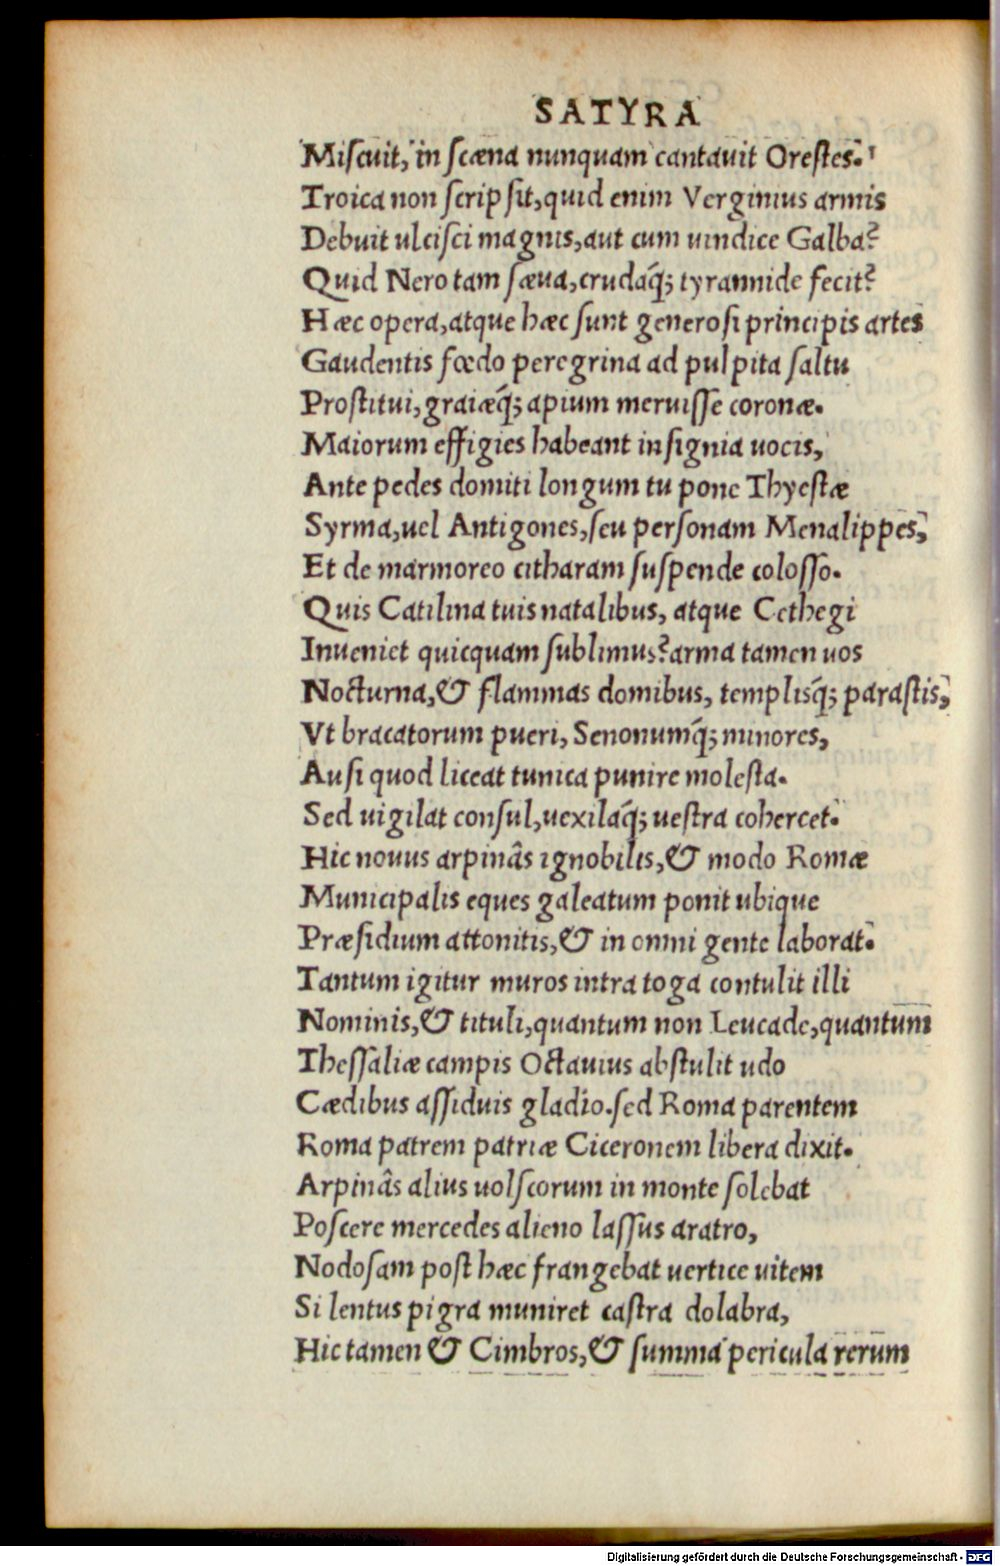 SATYRA
Miſcuit, in ſcæna nunquam cantauit Oreſtes.
Troica non ſcripſit, quid enim Verginius armis
Debuit ulciſci magnis, aut cum uindice Galba?
Quid Nero tam ſæua, crudaq́; tyrannide fecit?
Hæc opera, atque hæc ſunt generoſi principis artes
Gaudentis fœdo peregrina ad pulpita ſaltu
Proſtitui, graiæq́; apium meruiſſe coronæ.
Maiorum effigies habeant inſignia uocis,
Ante pedes domiti longum tu pone Thyeſtæ
Syrma, uel Antigones, ſeu perſonam Menalippes,
Et de marmoreo citharam ſuſpende coloſſo.
Quis Catilina tuis natalibus, atque Cethegi
Inueniet quicquam ſublimus? arma tamen uos
Nocturna, & flammas domibus, templisq́; paraſtis,
Vt bracatorum pueri, Senonumq́; minores,
Auſi quod liceat tunica punire moleſta.
Sed uigilat conſul, uexilaq́; ueſtra cohercet.
Hic nouus arpinâs ignobilis, & modo Romæ
Municipalis eques galeatum ponit ubique
Præſidium attonitis, & in omni gente laborat.
Tantum igitur muros intra toga contulit illi
Nominis, & tituli, quantum non Leucade, quantum
Theſſaliæ campis Octauius abſtulit udo
Cædibus aſſiduis gladio. ſed Roma parentem
Roma patrem patriæ Ciceronem libera dixit.
Arpinâs alius uolſcorum in monte ſolebat
Poſcere mercedes alieno laſſus aratro,
Nodoſam poſt hæc frangebat uertice uitem
Si lentus pigra muniret caſtra dolabra,
Hic tamen & Cimbros, & ſumma pericula rerum
Digitalisierung gefördert durch die Deutsche Forschungsgemeinschaft - DFG